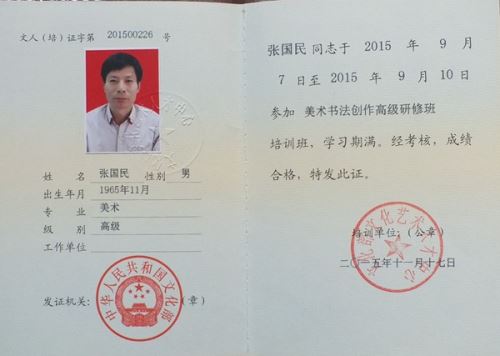 文人（培）证字第 201500226 号
姓 名 张国民 性别 男
出生年月 1965年11月
专 业 美术
级 别 高级
工作单位
发证机关：（章）
中华人民共和国文化部
张国民 同志于 2015 年 9 月
7 日至 2015 年 9 月 10 日
参加 美术书法创作高级研修班
培训班，学习期满。经考核，成绩
合格，特发此证。
培训单位：（公章）
二〇一五年十一月十七日